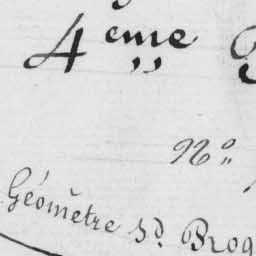 4eme
No
Géometre Sd. Brog